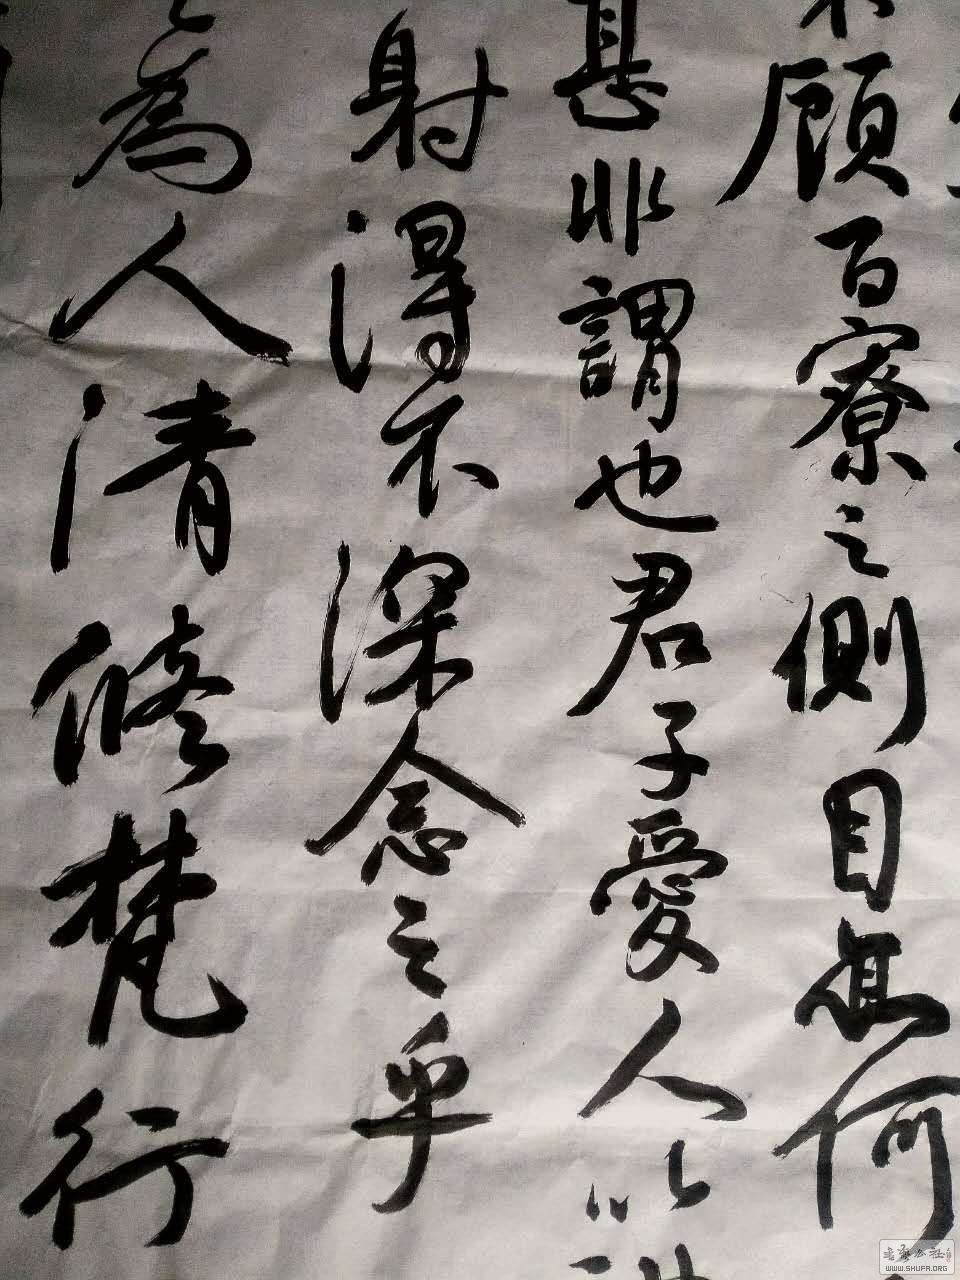 顧百寮之側目無何
甚非謂也君子愛人以
射得不深念之乎
為人清修梵行
WWW.SHUFA.ORG